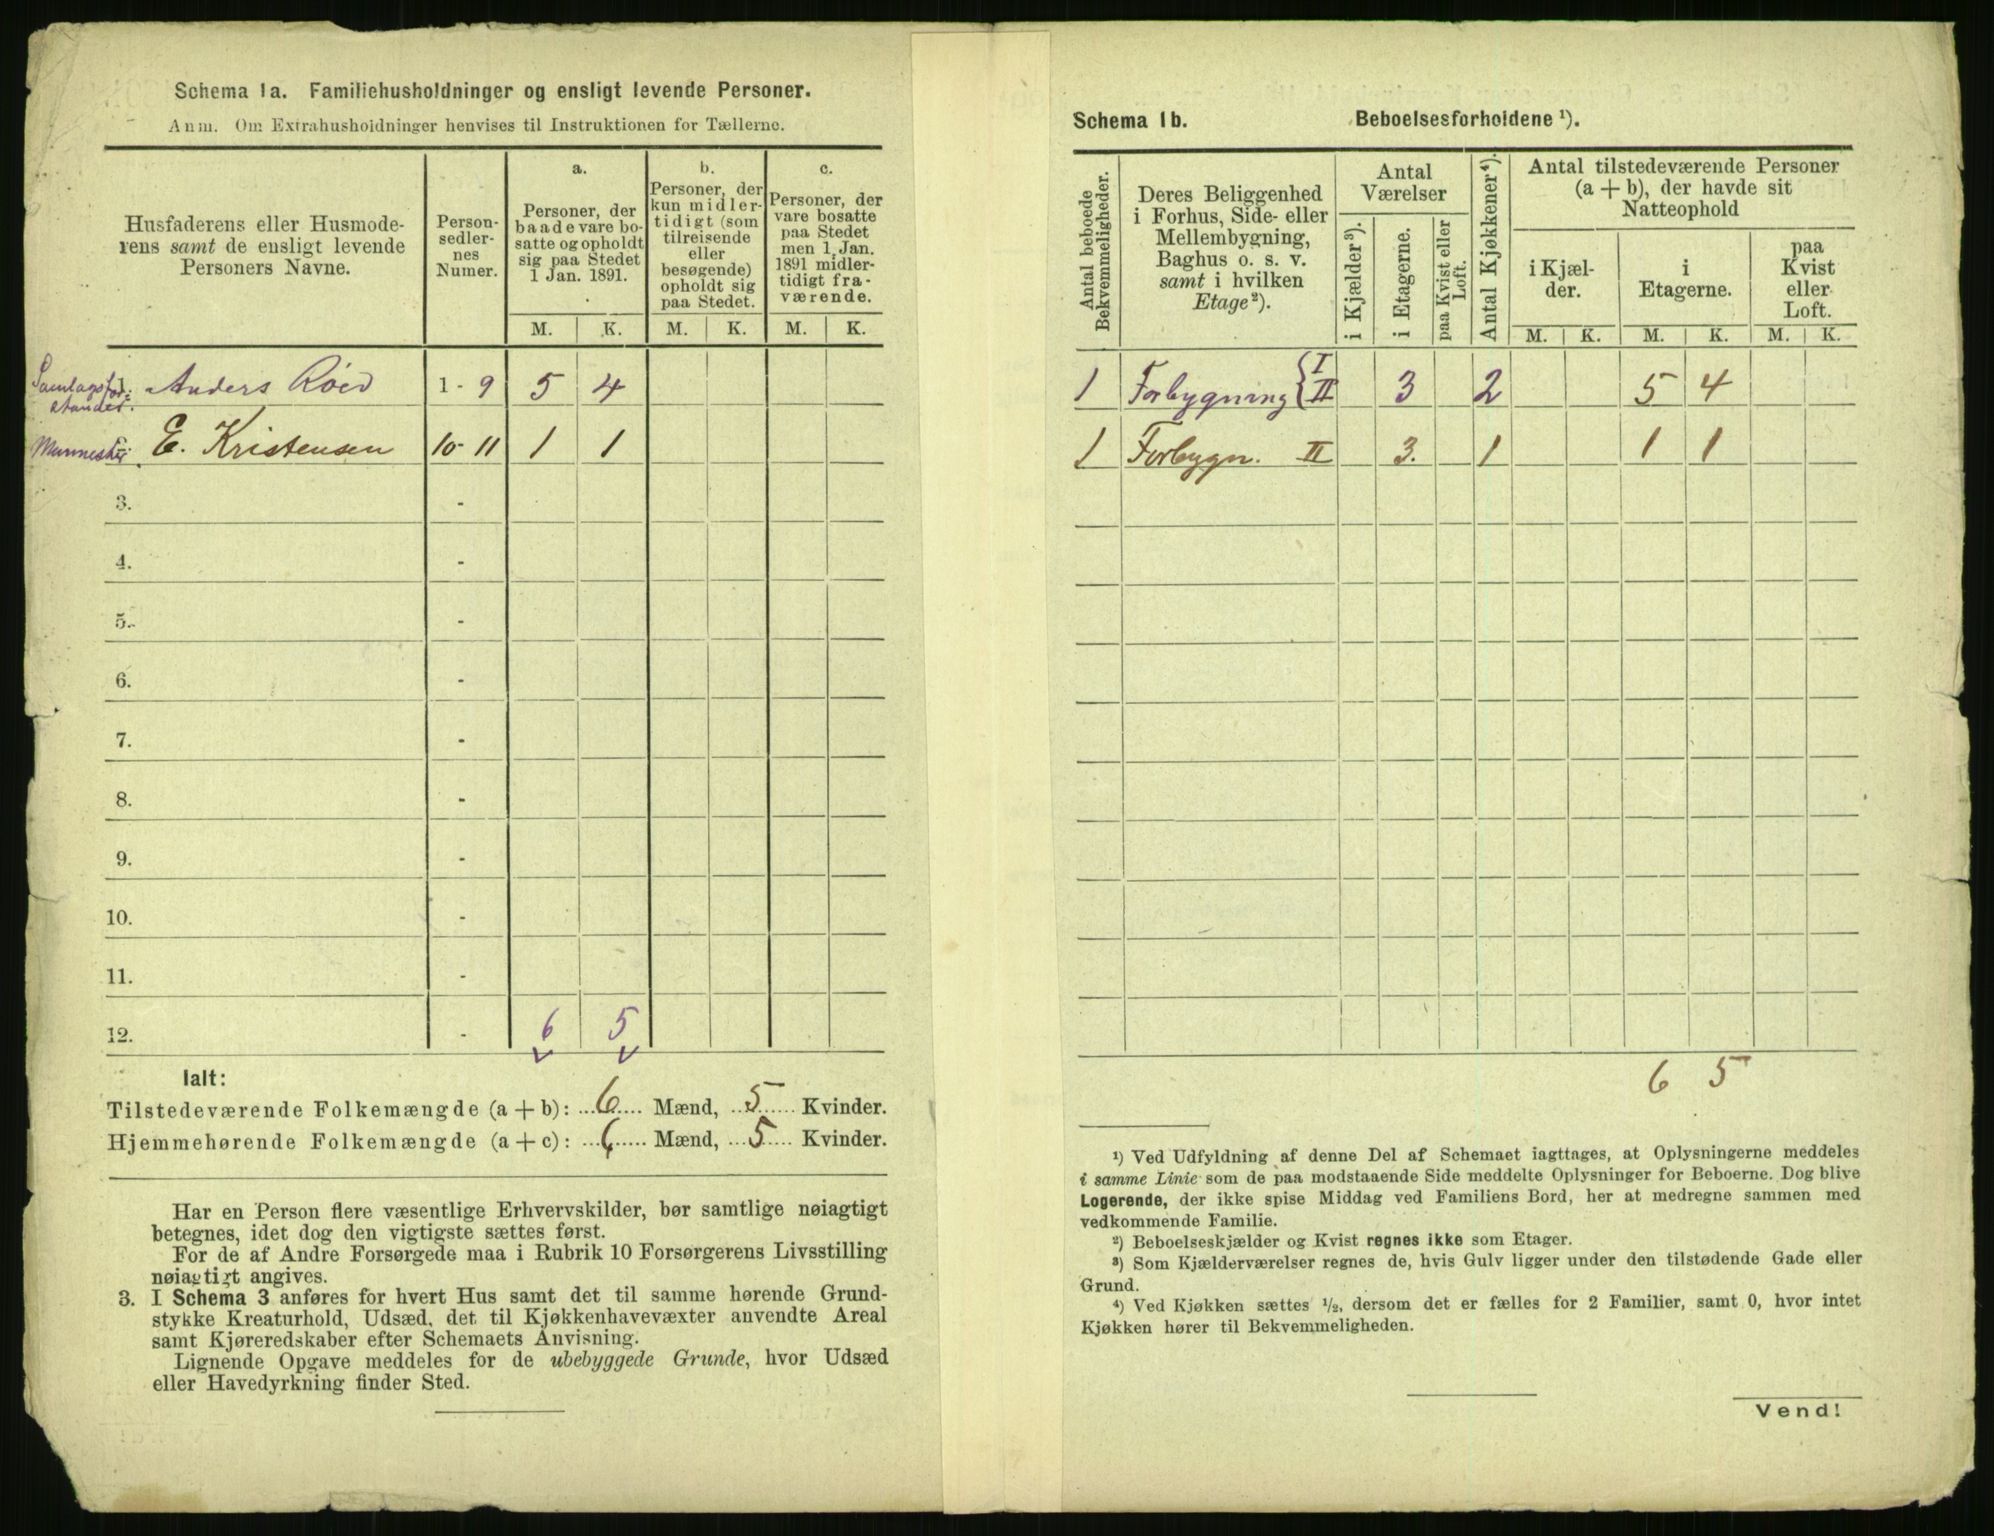 Schema 1a. Familiehusholdninger og ensligt levende Personer.
Anm. Om Extrahusholdninger henvises til Instruktionen for Tællerne.
Husfaderens eller Husmode-
rens samt de ensligt levende
Personers Navne.
Person-
sedler-
nes
Numer.
a.
Personer, der
baade vare bo-
satte og opholdt
sig paa Stedet
1 Jan. 1891.
b.
Personer, der
kun midler-
tidigt (som
tilreisende
eller
besøgende)
opholdt sig
paa Stedet.
c.
Personer, der
vare bosatte
paa Stedet
men 1 Jan.
1891 midler-
tidigt fra-
værende.
M. K. M. K. M. K.
Samlagsfor- 1. Anders Röed 1 - 9 5 4
stander.
E. Kristensen 10 - 11 1 1
3. -
4. -
5. -
6. -
7. -
8. -
9. -
10. -
11. -
12. - 6 5
Ialt:
Tilstedeværende Folkemængde (a + b): 6 Mænd, 5 Kvinder.
Hjemmehørende Folkemængde (a + c): 6 Mænd, 5 Kvinder.
Har en Person flere væsentlige Erhvervskilder, bør samtlige nøiagtigt
betegnes, idet dog den vigtigste sættes først.
For de af Andre Forsørgede maa i Rubrik 10 Forsørgerens Livsstilling
nøiagtigt angives.
3. I Schema 3 anføres for hvert Hus samt det til samme hørende Grund-
stykke Kreaturhold, Udsæd, det til Kjøkkenhavevæxter anvendte Areal
samt Kjøreredskaber efter Schemaets Anvisning.
Lignende Opgave meddeles for de ubebyggede Grunde, hvor Udsæd
eller Havedyrkning finder Sted.
Schema 1b. Beboelsesforholdene ¹).
Antal beboede
Bekvemmeligheder.
Deres Beliggenhed
i Forhus, Side- eller
Mellembygning,
Baghus o. s. v.
samt i hvilken
Etage²).
Antal
Værelser
i Kjælder³).
i Etagerne.
paa Kvist eller
Loft.
Antal Kjøkkener⁴).
Antal tilstedeværende Personer
(a + b), der havde sit
Natteophold
i Kjæl-
der.
i
Etagerne.
paa
Kvist
eller
Loft.
M. K. M. K. M. K.
1 Forbygning { I II 3 2 5 4
1 Forbygn. II 3. 1 1 1
6 5
¹) Ved Udfyldning af denne Del af Schemaet iagttages, at Oplysningerne meddeles
i samme Linie som de paa modstaaende Side meddelte Oplysninger for Beboerne. Dog blive
Logerende, der ikke spise Middag ved Familiens Bord, her at medregne sammen med
vedkommende Familie.
²) Beboelseskjælder og Kvist regnes ikke som Etager.
³) Som Kjælderværelser regnes de, hvis Gulv ligger under den tilstødende Gade eller
Grund.
⁴) Ved Kjøkken sættes ½, dersom det er fælles for 2 Familier, samt 0, hvor intet
Kjøkken hører til Bekvemmeligheden.
Vend!